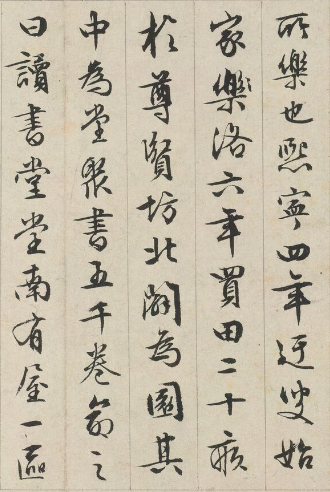 所樂也熙寧四年迂叟始
家樂洛六年買田二十畝
於尊賢坊北闢為園其
中為堂聚書五千卷命之
曰讀書堂堂南有屋一區